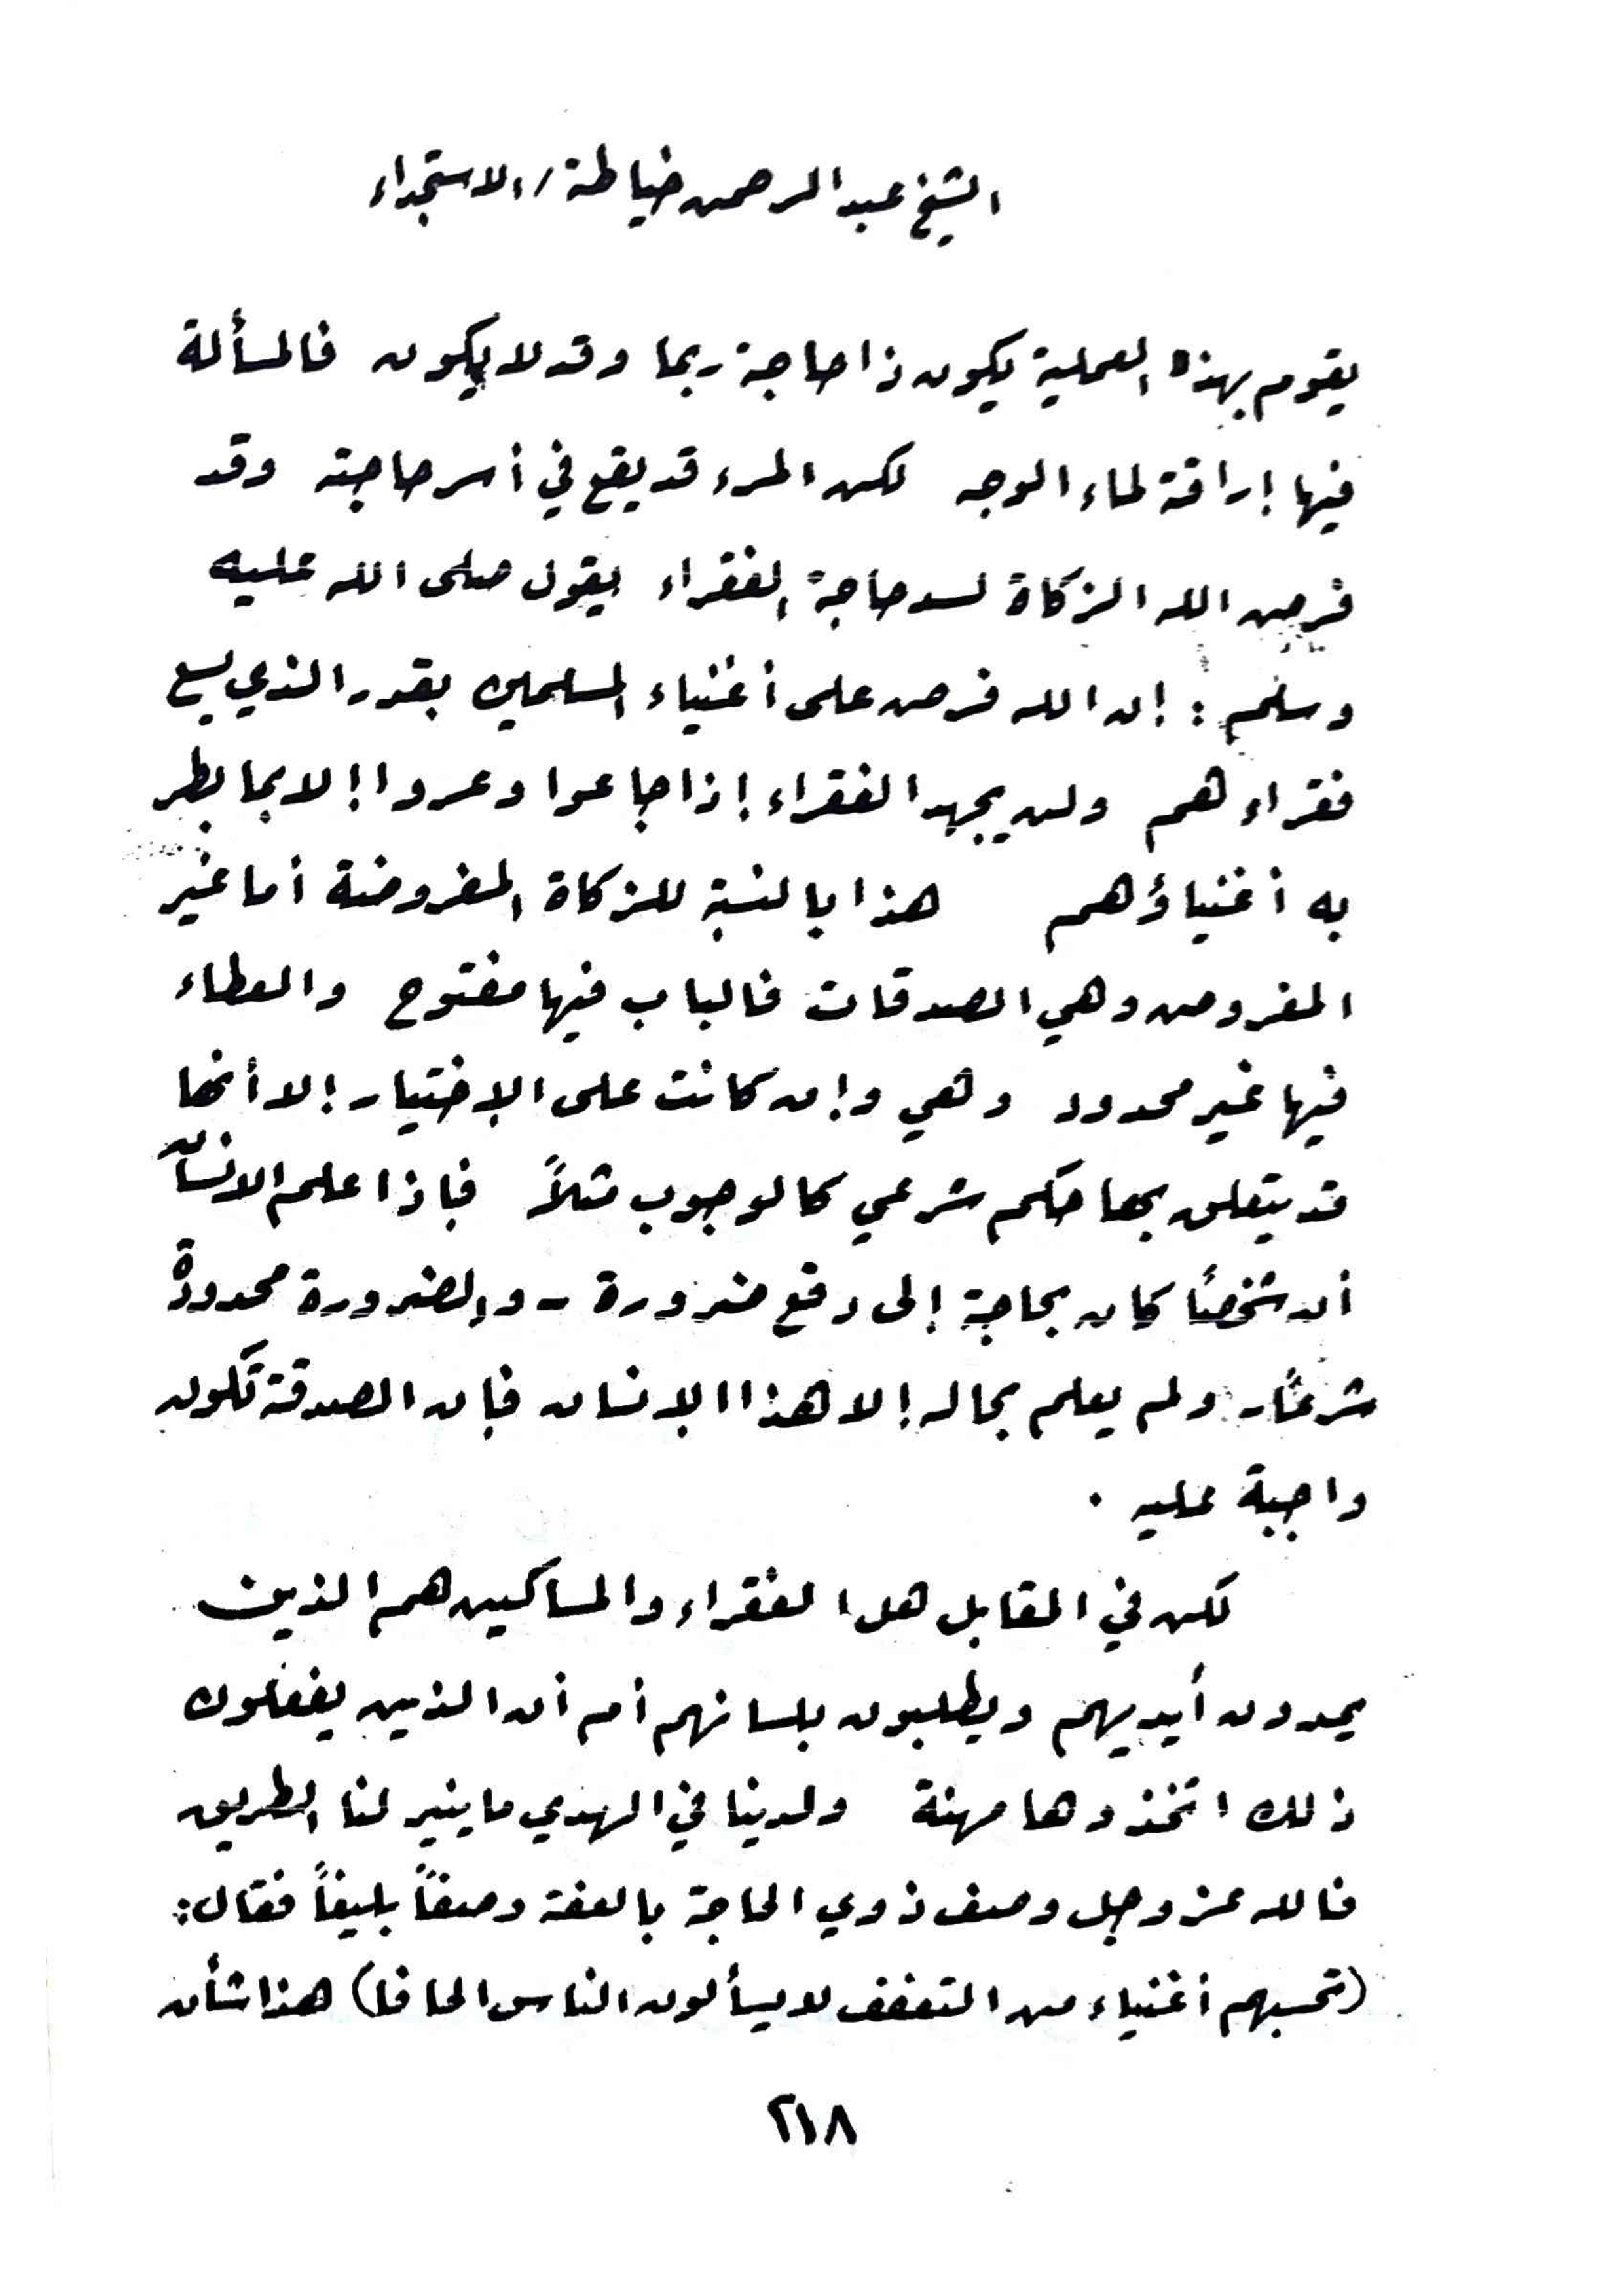 الشيخ عبد الرحمن خياطة / الاستجداء
يقوم بهذه العملية يكون ذا حاجة ربما وقد لا يكون فالمسألة
فيها إراقة لماء الوجه لكن المرء قد يقع في أسر حاجته وقد
فرض الله الزكاة لسد حاجة الفقراء يقول صلى الله عليه
وسلم : إن الله فرض على أغنياء المسلمين بقدر الذي يسع
فقراءهم ولن يجهد الفقراء إذا جاعوا وعروا إلا بما بطر
به أغنياؤهم هذا بالنسبة للزكاة المفروضة أما غير
المفروض وهي الصدقات فالباب فيها مفتوح والعطاء
فيها غير محدود وهي وإن كانت على الإختيار إلا أنها
قد يتعلق بها حكم شرعي كالوجوب مثلاً فإذا علم الانسان
أن شخصاً كان بحاجة إلى دفع ضرورة - والضرورة محدودة
شرعاً - ولم يعلم بحاله إلا هذا الإنسان فإن الصدقة تكون
واجبة عليه .
لكن في المقابل هل الفقراء والمساكين هم الذين
يمدون أيديهم ويطلبون بلسانهم أم أن الذين يفعلون
ذلك اتخذوها مهنة ولدينا في الهدي ما ينير لنا الطريق
فالله عز وجل وصف ذوي الحاجة بالعفة وصفاً بليغاً فقال :
(تحسبهم أغنياء من التعفف لا يسألون الناس الحافا) هذا شأن
٢١٨